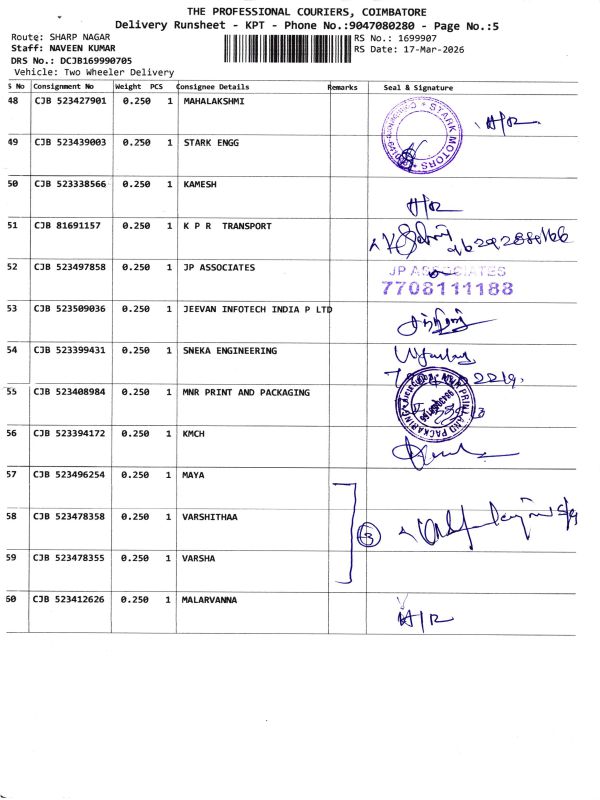 THE PROFESSIONAL COURIERS, COIMBATORE
Delivery Runsheet - KPT - Phone No.:9047080280 - Page No.:5
Route: SHARP NAGAR
Staff: NAVEEN KUMAR
DRS No.: DCJB169990705
Vehicle: Two Wheeler Delivery
RS No.: 1699907
RS Date: 17-Mar-2026
S No Consignment No Weight PCS Consignee Details Remarks Seal & Signature
48 CJB 523427901 0.250 1 MAHALAKSHMI H/R
STARK MOTORS
49 CJB 523439003 0.250 1 STARK ENGG
50 CJB 523338566 0.250 1 KAMESH H/R
51 CJB 81691157 0.250 1 K P R TRANSPORT
52 CJB 523497858 0.250 1 JP ASSOCIATES JP ASSOCIATES
7708111188
53 CJB 523509036 0.250 1 JEEVAN INFOTECH INDIA P LTD
54 CJB 523399431 0.250 1 SNEKA ENGINEERING
55 CJB 523408984 0.250 1 MNR PRINT AND PACKAGING
MNR PRINT AND PACKAGING
56 CJB 523394172 0.250 1 KMCH
57 CJB 523496254 0.250 1 MAYA
58 CJB 523478358 0.250 1 VARSHITHAA 3
59 CJB 523478355 0.250 1 VARSHA
60 CJB 523412626 0.250 1 MALARVANNA H/R